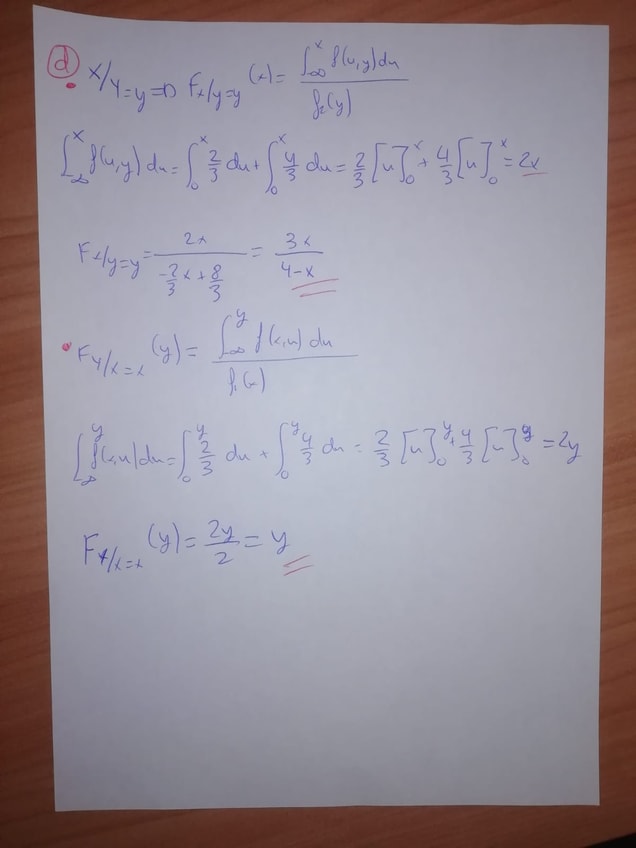 d
X/Y=y => F_{X/Y=y}(x) = ∫_{-∞}^{x} f(u,y)du / f₂(y)
∫_{-∞}^{x} f(u,y)du = ∫_0^x 2/3 du + ∫_0^x 4/3 du = 2/3 [u]_0^x + 4/3 [u]_0^x = 2x
F_{X/Y=y} = 2x / (-2/3 x + 8/3) = 3x / (4-x)
• F_{Y/X=x}(y) = ∫_{-∞}^{y} f(x,u)du / f₁(x)
∫_{-∞}^{y} f(x,u)du = ∫_0^y 2/3 du + ∫_0^y 4/3 du = 2/3 [u]_0^y + 4/3 [u]_0^y = 2y
F_{Y/X=x}(y) = 2y/2 = y